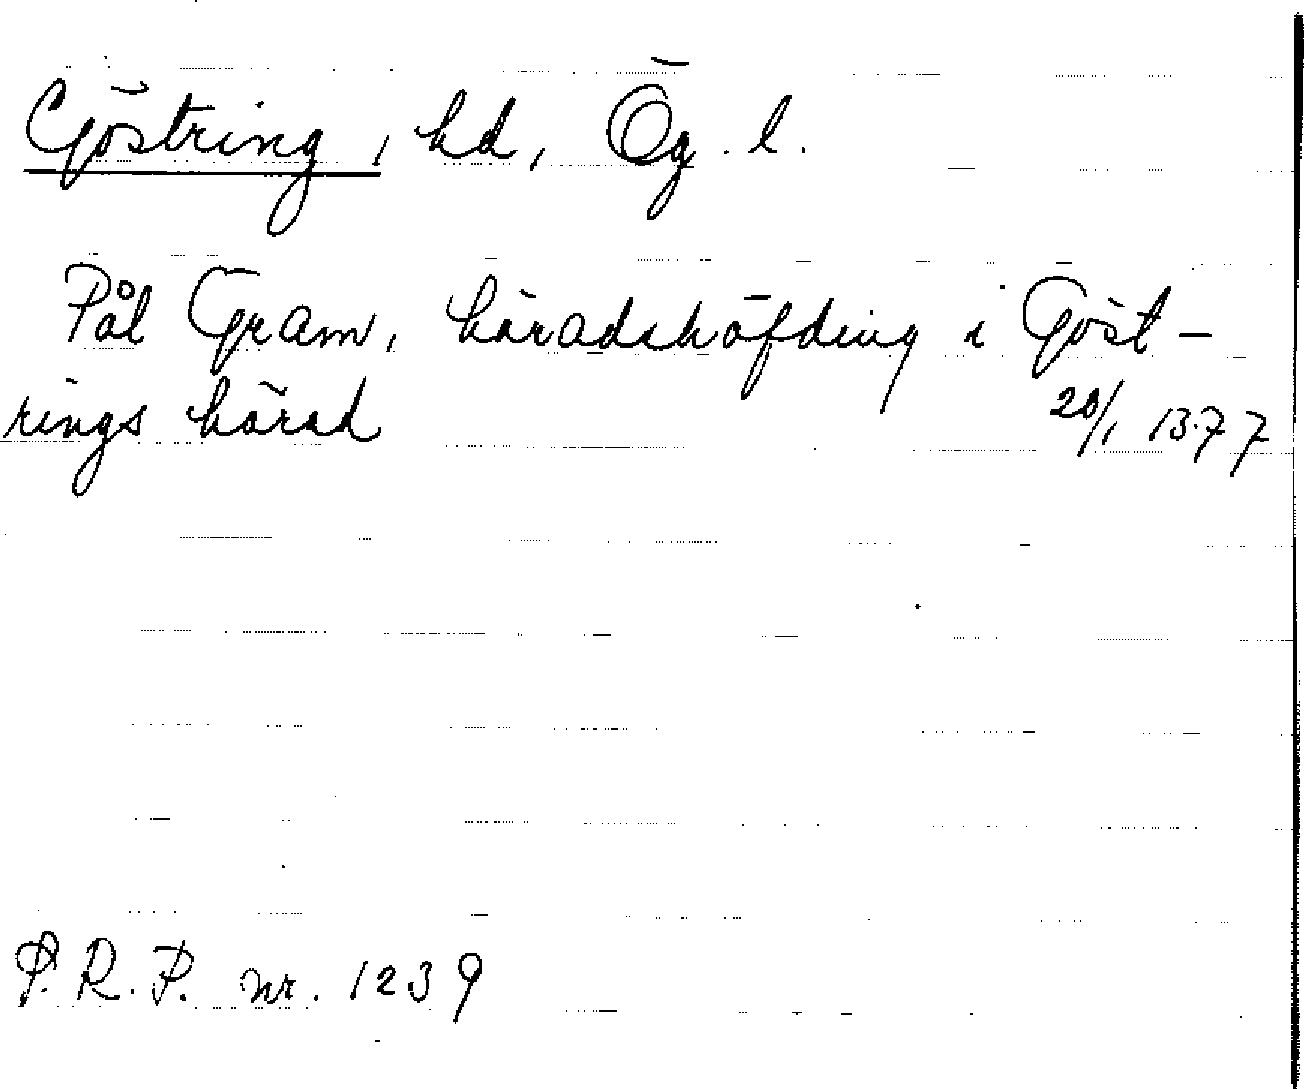 Göstring, hd, Ög. l.
Pål Gram, häradshöfding i Göst-
rings härad 20/1 1377
P. R. P. nr. 1239